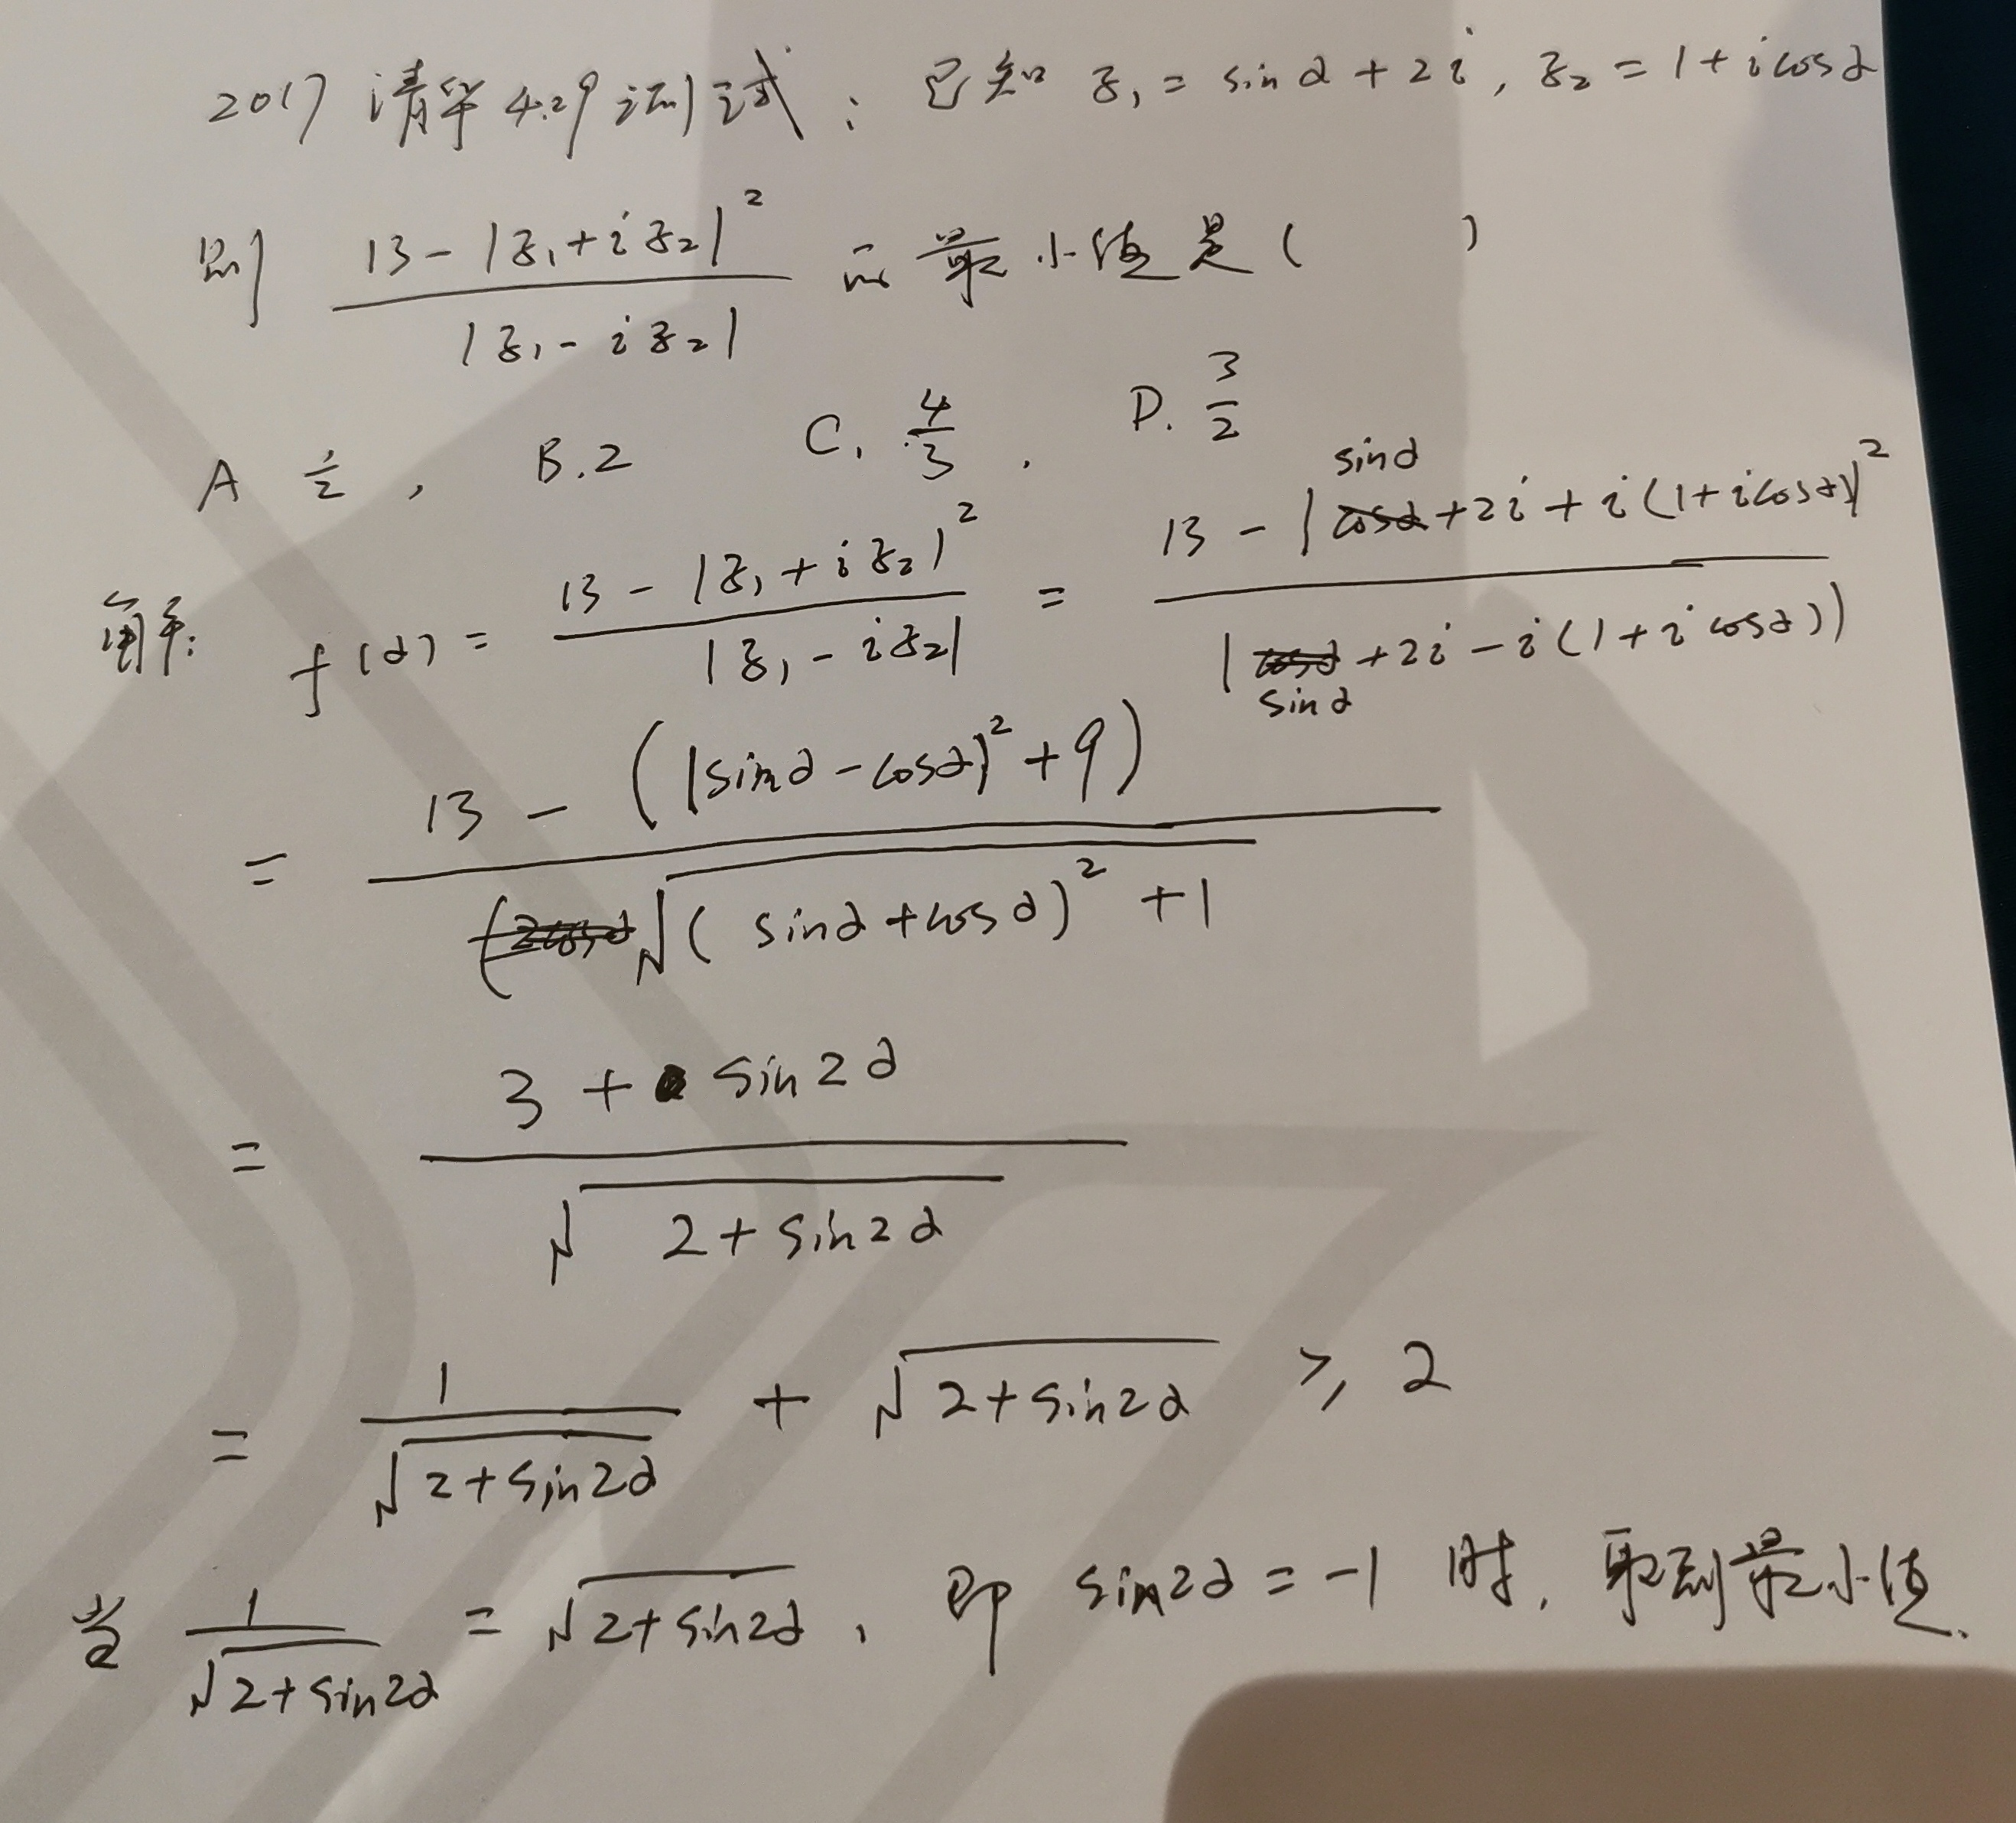 2017清华4.29测试: 已知 z₁ = sin α + 2i, z₂ = 1 + i cos α
则 (13 - |z₁ + i z₂|²) / |z₁ - i z₂| 的最小值是 ( )
A 1/2, B. 2 C. 4/3, D. 3/2
解: f(α) = (13 - |z₁ + i z₂|²) / |z₁ - i z₂| = (13 - |sin α + 2i + i(1 + i cos α)|²) / |sin α + 2i - i(1 + i cos α)|
= (13 - ((sin α - cos α)² + 9)) / √((sin α + cos α)² + 1)
= (3 + sin 2α) / √(2 + sin 2α)
= 1 / √(2 + sin 2α) + √(2 + sin 2α) ≥ 2
当 1 / √(2 + sin 2α) = √(2 + sin 2α), 即 sin 2α = -1 时, 取到最小值.